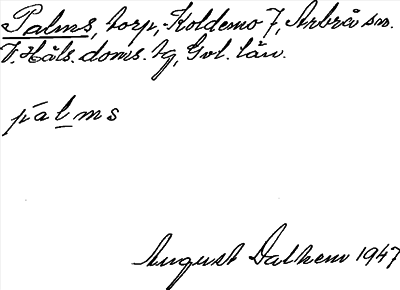 Palms, torp, Koldemo 7, Arbrå sn.
V. Häls. doms. tg, Gvl. län.
pālms
August Dalhem 1947